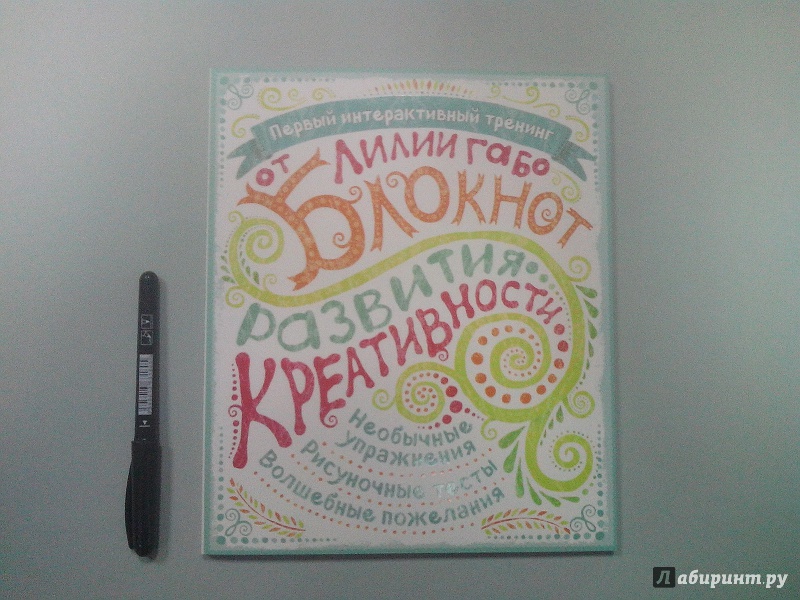 Первый интерактивный тренинг
от Лилии Габо
Блокнот
развития
Креативности
Необычные
упражнения
Рисуночные тесты
Волшебные пожелания
Лабиринт.ру